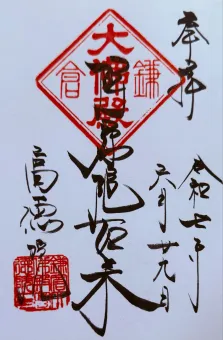 奉拝
令和七年
六月廿九日
大佛殿
鎌倉
阿弥陀如来
高徳院